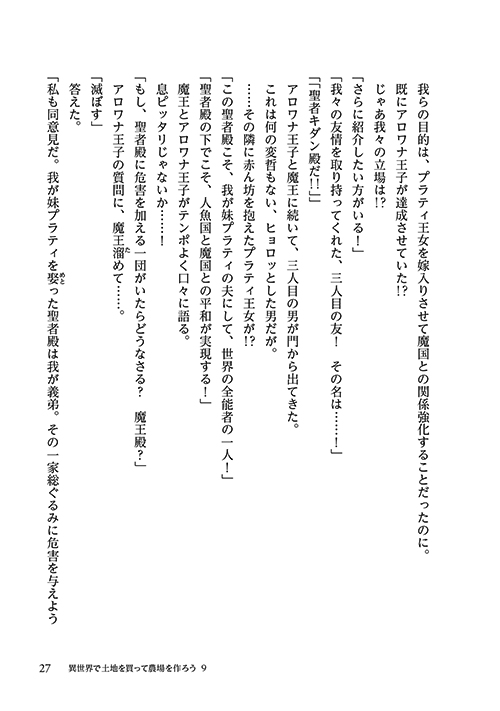 我らの目的は、プラティ王女を嫁入りさせて魔国との関係強化することだったのに。
既にアロワナ王子が達成させていた!?
じゃあ我々の立場は!?
「さらに紹介したい方がいる!」
「我々の友情を取り持ってくれた、三人目の友!　その名は……!」
「「聖者キダン殿だ!!」」
アロワナ王子と魔王に続いて、三人目の男が門から出てきた。
これは何の変哲もない、ヒョロッとした男だが。
……その隣に赤ん坊を抱えたプラティ王女が!?
「この聖者殿こそ、我が妹プラティの夫にして、世界の全能者の一人!」
「聖者殿の下でこそ、人魚国と魔国との平和が実現する!」
魔王とアロワナ王子がテンポよく口々に語る。
息ピッタリじゃないか……!
「もし、聖者殿に危害を加える一団がいたらどうなさる?　魔王殿?」
アロワナ王子の質問に、魔王溜めて……。
た
「滅ぼす」
答えた。
「私も同意見だ。我が妹プラティを娶った聖者殿は我が義弟。その一家総ぐるみに危害を与えよう
めと
27　異世界で土地を買って農場を作ろう 9